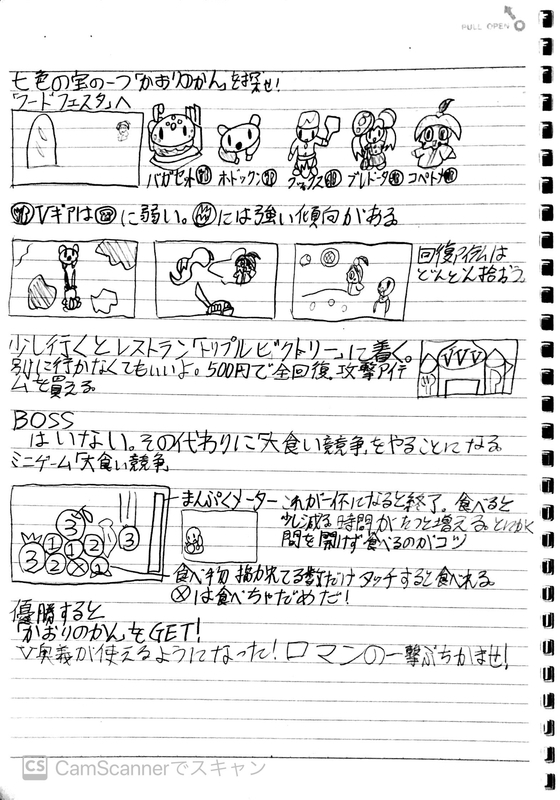 PULL OPEN
七色の宝の一つ「かおりのかん」を探せ!
「フードフェスタ」へ
バガセット ホドックン ブレドータ コペトン
Vギアは に弱い。 には強い傾向がある
回復アイテムは
どんどん拾おう
少し行くとレストラン「トリプルビクトリー」に着く。
別に行かなくてもいいよ。500円で全回復、攻撃アイテ
ムを買える。
VVV
BOSS
はいない。その代わりに「大食い競争」をやることになる
ミニゲーム「大食い競争」
まんぷくメーター これが一杯になると終了。食べると
少し減る 時間がたつと増える。とにかく
間を開けず食べるのがコツ
3 3 1 2 3 2 X 1
食べ物 描かれてる数だけタッチすると食べれる
Xは食べちゃだめだ!
優勝すると
「かおりのかん」をGET!
V奥義が使えるようになった!ロマンの一撃ぶちかませ!
CS CamScannerでスキャン